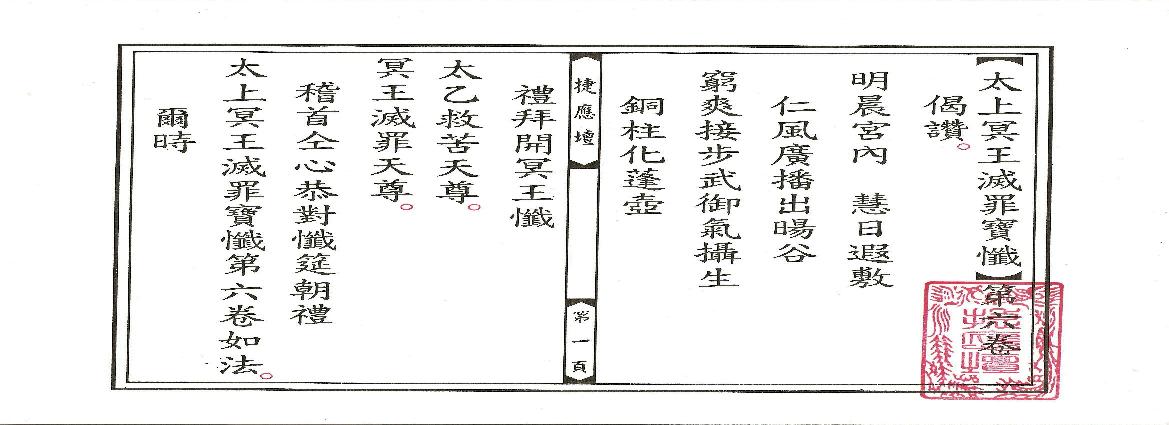 【太上冥王滅罪寶懺】第六卷
偈讚。
明晨宮內　慧日遐敷
仁風廣播出暘谷
窮爽接步武御氣攝生
銅柱化蓬壺
捷應壇
第一頁
禮拜開冥王懺
太乙救苦天尊。
冥王滅罪天尊。
稽首仝心恭對懺筵朝禮
太上冥王滅罪寶懺第六卷如法。
爾時